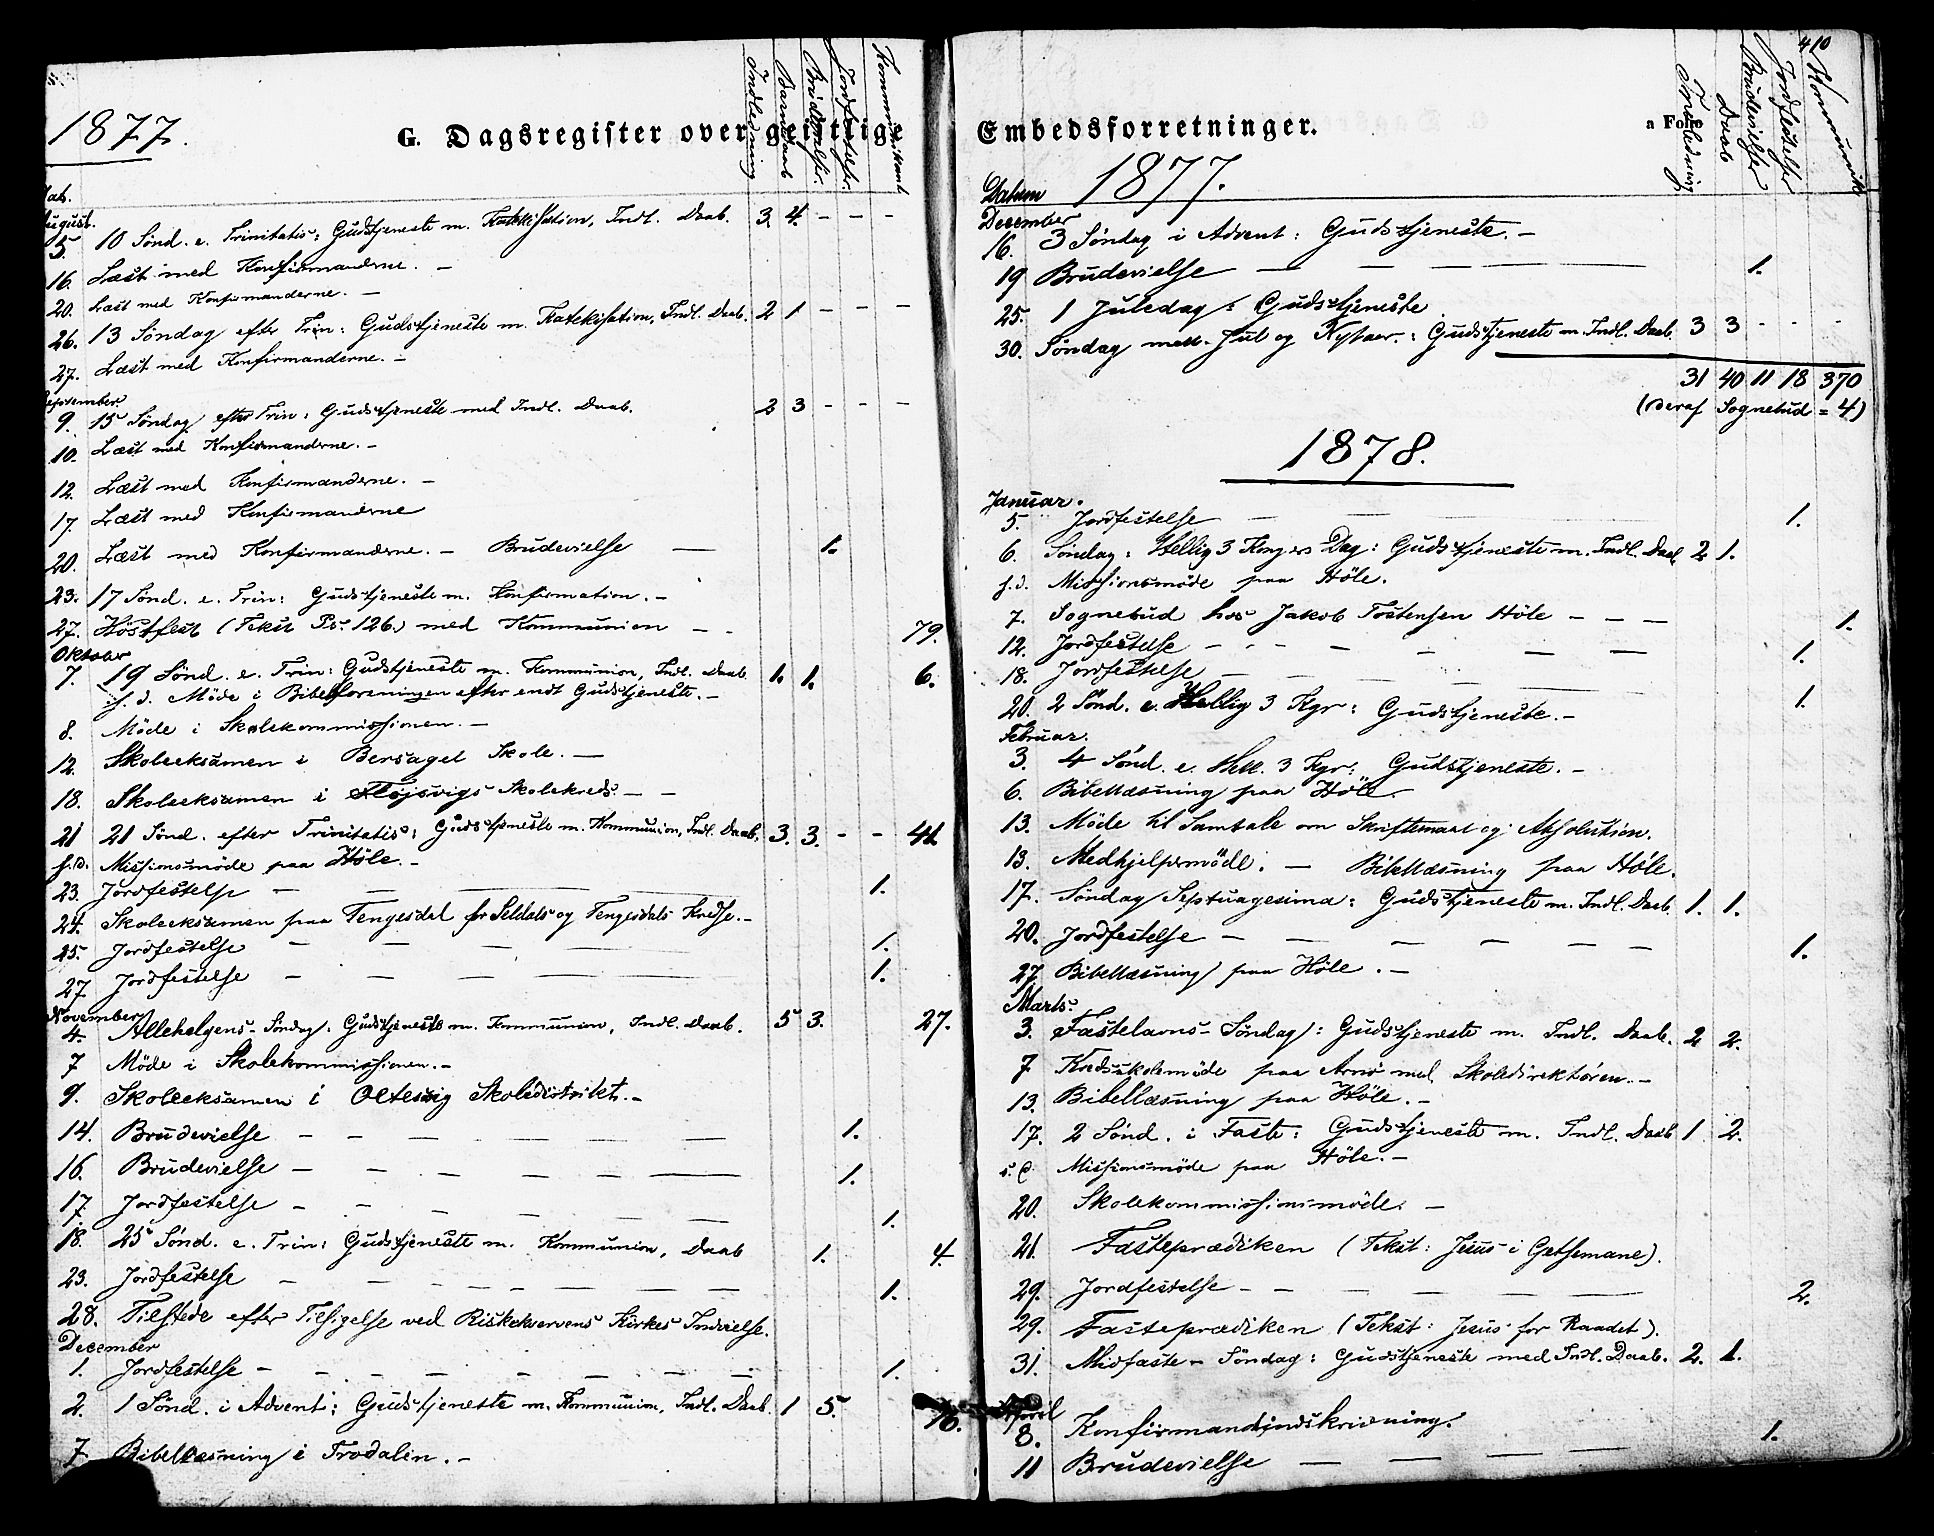 1877.
G. Dagsregister over geistlige
Indledning
Barnedaab
Brudevielser.
Jordfæstelser.
Kommunikant.
Dat.
August.
5. 10 Sönd. e. Trinitatis: Gudstjeneste m. Katekisation, Indl. Daab. 3. 4. - - -
16. Læst med Konfirmanderne. -
20. Læst med Konfirmanderne. -
26. 13 Söndag efter Trin: Gudstjeneste m. Katekisation, Indl. Daab. 2 1 - - -
27. Læst med Konfirmanderne. -
September
9. 15 Söndag efter Trin: Gudstjeneste med Indl. Daab. 2 3 - - -
10. Læst med Konfirmanderne. -
12. Læst med Konfirmanderne. -
17. Læst med Konfirmanderne
20. Læst med Konfirmanderne. - Brudevielse — 1.
23. 17 Sönd. e. Trin: Gudstjeneste m. Konfirmation. -
27. Höstfest (Tekst Ps. 126.) med Kommunion - - 79.
Oktober
7. 19 Sönd. e. Trin: Gudstjeneste m. Kommunion, Indl. Daab 1. 1. 6.
s. d. Möde i Bibelforeningen efter endt Gudstjeneste. -
8. Möde i Skolekommissionen. -
12. Skoleeksamen i Bersagel Skole. —
18. Skoleeksamen i Skolekreds - -
21 21 Sönd. efter Trinitatis: Gudstjeneste m. Kommunion, Indl. Daab. 3. 3. - - 41.
s. d. Missionsmöde paa Höle. -
23. Jordfestelse — — — 1.
24. Skoleeksamen paa Tengesdal for Seldals og Tengesdals Kredse. -
25. Jordfestelse — — — 1.
27 Jordfestelse — — — 1.
November
4. Allehelgens-Söndag: Gudstjeneste m. Kommunion, Indl. Daab. 5 3. 27.
7 Möde i Skolekommissionen. -
9. Skoleeksamen i Oltesvig Skoledistrikt. -
14. Brudevielse — — — 1.
16. Brudevielse — — — 1.
17. Jordfestelse — — — 1.
18. 25 Sönd. e. Trin: Gudstjeneste m. Kommunion, Daab 1. 4.
23. Jordfestelse — — — 1.
28. Tilstede efter Tilsigelse ved Riskekvervens Kirkes Indvielse.
December
1. Jordfestelse — — — 1.
2. 1 Sönd. i Advent: Gudstjeneste m. Kommunion, Indl. Daab. 1 5. 16.
7. Bibellæsning i Frodalin. -
Embedsforretninger.
a Folio
410
Indledning
Daab
Brudevielser
Jordfestelser
Kommunik
1877.
Datum
December
16. 3 Söndag i Advent: Gudstjeneste. -
19 Brudevielse — — — 1.
25. 1 Juledag: Gudstjeneste
30. Söndag mell. Jul og Nytaar.: Gudstjeneste m. Indl. Daab 3 3 - - -
31 40 11 18 370
(deraf Sognebud = 4)
1878.
Januar.
5. Jordfestelse — — — 1.
6. Söndag: Hellig 3 Kongers Dag: Gudstjeneste m. Indl. Daab 2 1.
s. d. Missionsmöde paa Höle.
7. Sognebud hos Jakob Tostensen Höle — — — 1.
12. Jordfestelse — — — 1.
18. Jordfestelse — — — 1.
20. 2 Sönd. e. Hellig 3 Kgr: Gudstjeneste. -
Februar.
3. 4 Sönd. e. Hell. 3 Kgr: Gudstjeneste. -
6. Bibellæsning paa Höle
13. Möde til Samtale om Skriftemaal og Absolution.
13. Medhjelpermöde. — Bibellæsning paa Höle.
17. Söndag Septuagesima: Gudstjeneste m. Indl. Daab 1. 1.
20. Jordfestelse — — — 1.
27 Bibellæsning paa Höle. -
Marts.
3. Fastelavns-Söndag: Gudstjeneste m. Indl. Daab. 2 2.
7 Kredsskolemöde paa med Skoledirektören. -
13. Bibellæsning paa Höle. -
17. 2 Sönd. i Faste: Gudstjeneste m. Indl. Daab 1 2.
s. d. Missionsmöde paa Höle. -
20. Skolekommissionsmöde. -
21. Fasteprædiken (Tekst: Jesus i Getsemane).
29. Jordfestelse — — — 2.
29. Fasteprædiken (Tekst: Jesus for Raadet).
31. Midfaste-Söndag: Gudstjeneste med Indl. Daab. 2. 1.
April
8. Konfirmandindskrivning.
11 Brudevielse — — — 1.